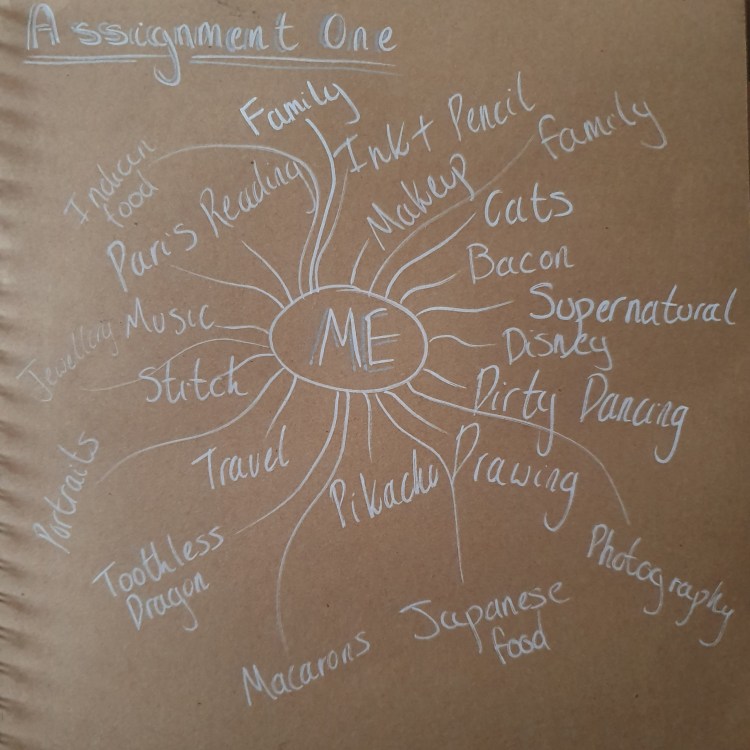 Assignment One
Family
Ink + Pencil
family
Indian
food
Paris
Reading
Makeup
Cats
Bacon
Supernatural
Disney
Dirty Dancing
ME
Jewellery
Music
Stitch
Portraits
Travel
Pikachu
Drawing
Photography
Toothless
Dragon
Macarons
Japanese
food